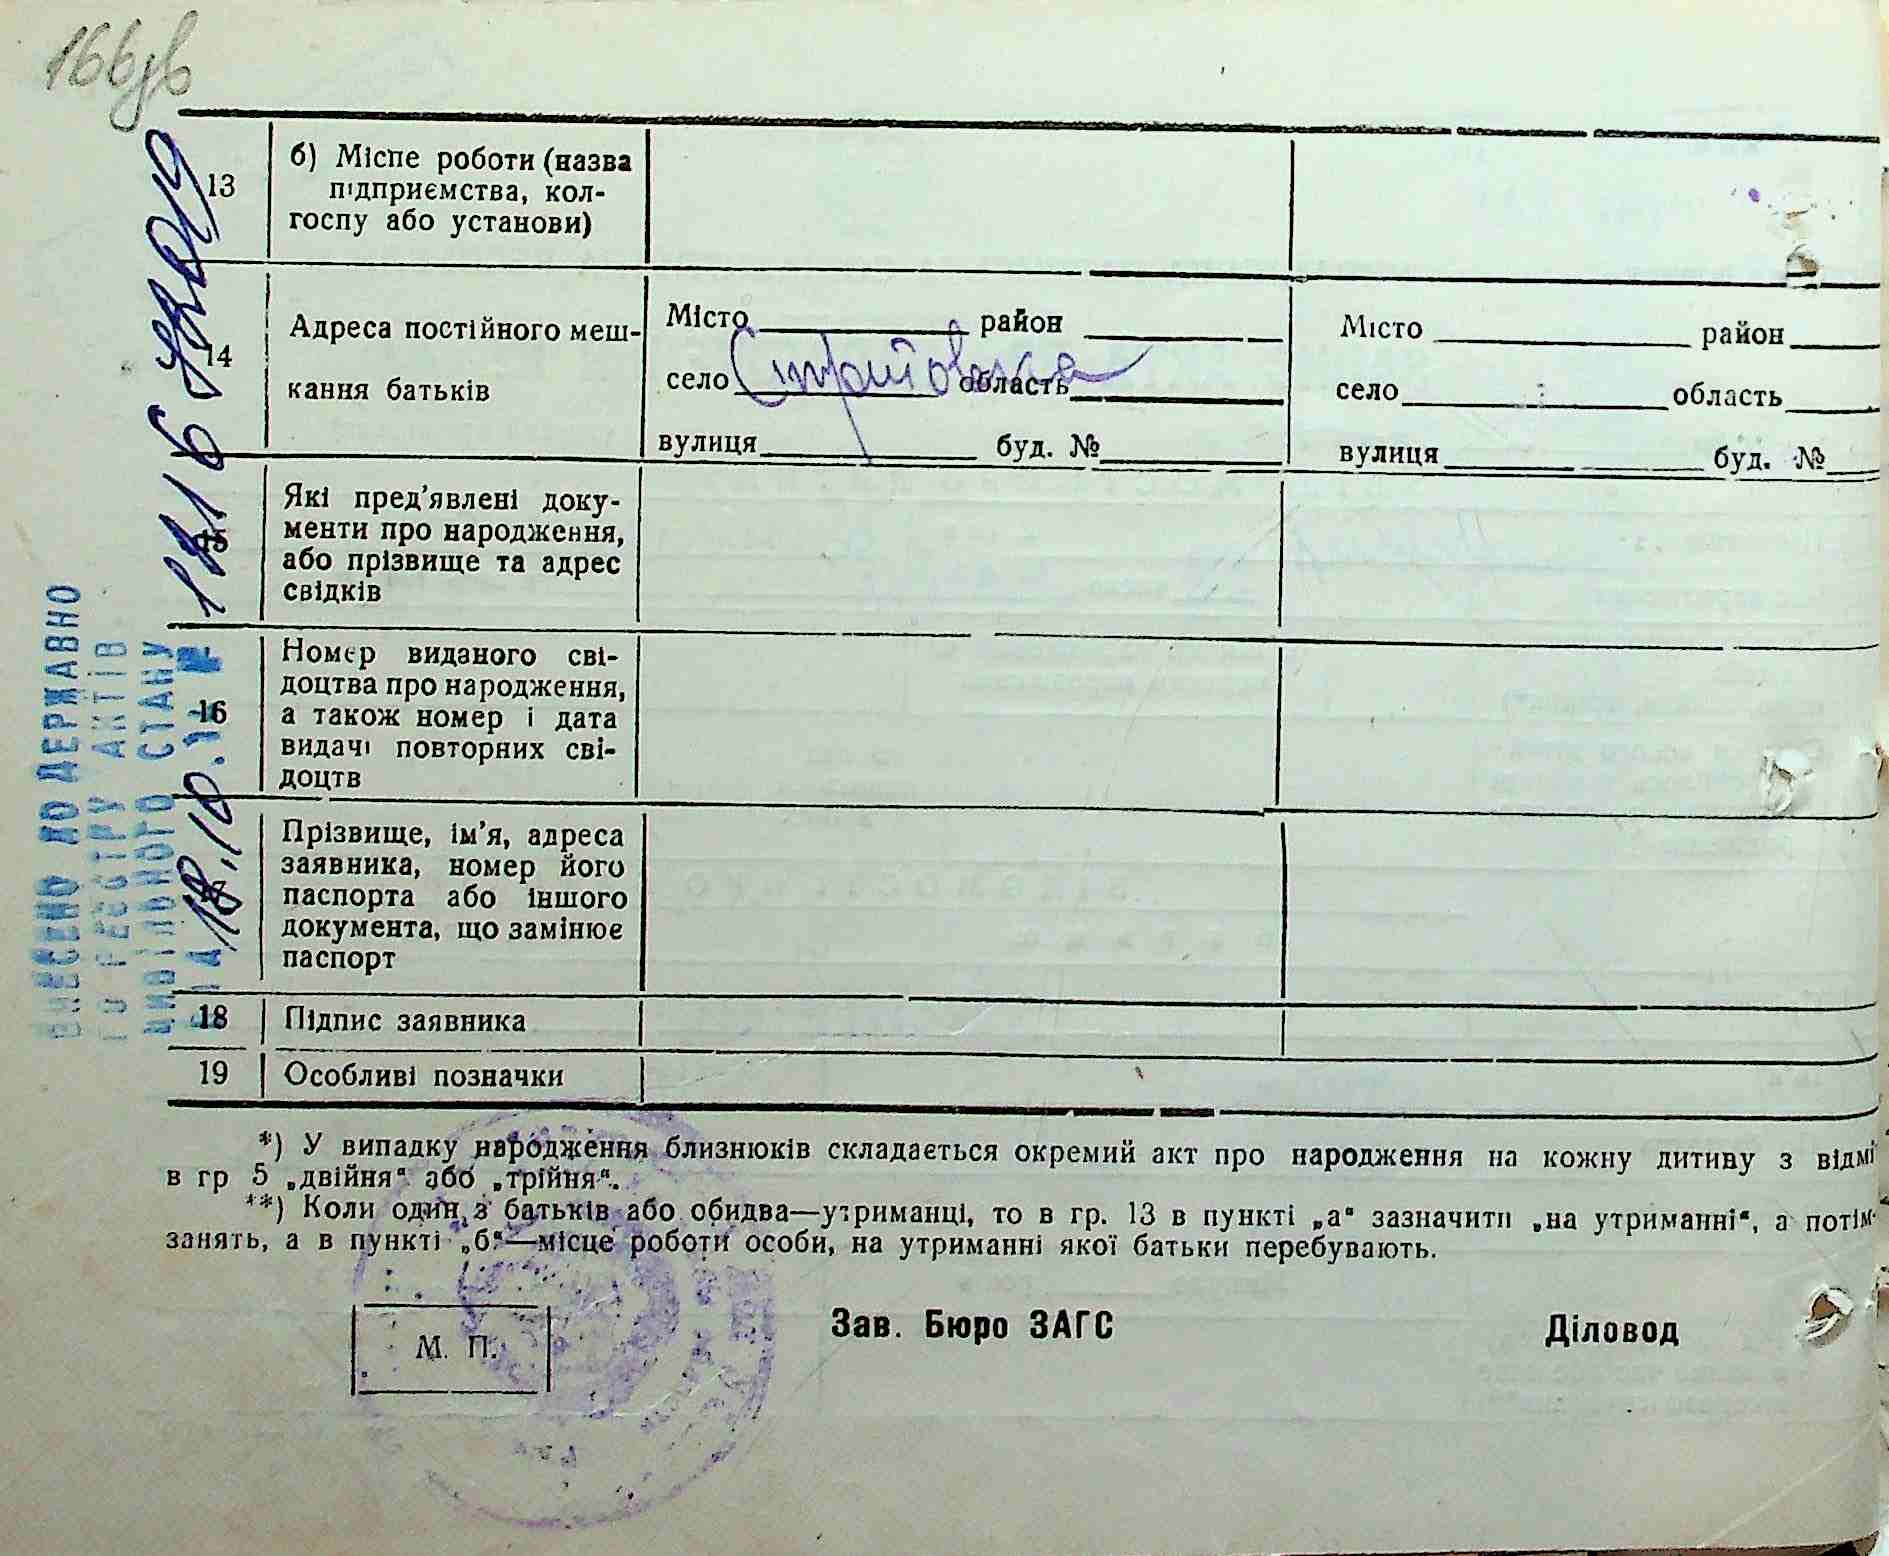 166зв
13
б) Місце роботи (назва
підприємства, кол-
госпу або установи)
14
Адреса постійного меш-
кання батьків
Місто район
село область
вулиця буд. №
Місто район
село область
вулиця буд. №
15
Які пред’явлені доку-
менти про народження,
або прізвище та адрес
свідків
16
Номер виданого сві-
доцтва про народження,
а також номер і дата
видачі повторних сві-
доцтв
Прізвище, ім’я, адреса
заявника, номер його
паспорта або іншого
документа, що замінює
паспорт
18 Підпис заявника
19 Особливі позначки
*) У випадку народження близнюків складається окремий акт про народження на кожну дитину з відмі
в гр 5 „двійня“ або „трійня“.
**) Коли один з батьків або обидва—утриманці, то в гр. 13 в пункті „а“ зазначити „на утриманні“, а потім
занять, а в пункті „б“—місце роботи особи, на утриманні якої батьки перебувають.
М. П.
Зав. Бюро ЗАГС
Діловод
ВНЕСЕНО ДО ДЕРЖАВНО
ГО РЕЄСТРУ АКТІВ
ЦИВІЛЬНОГО СТАНУ
18.10.